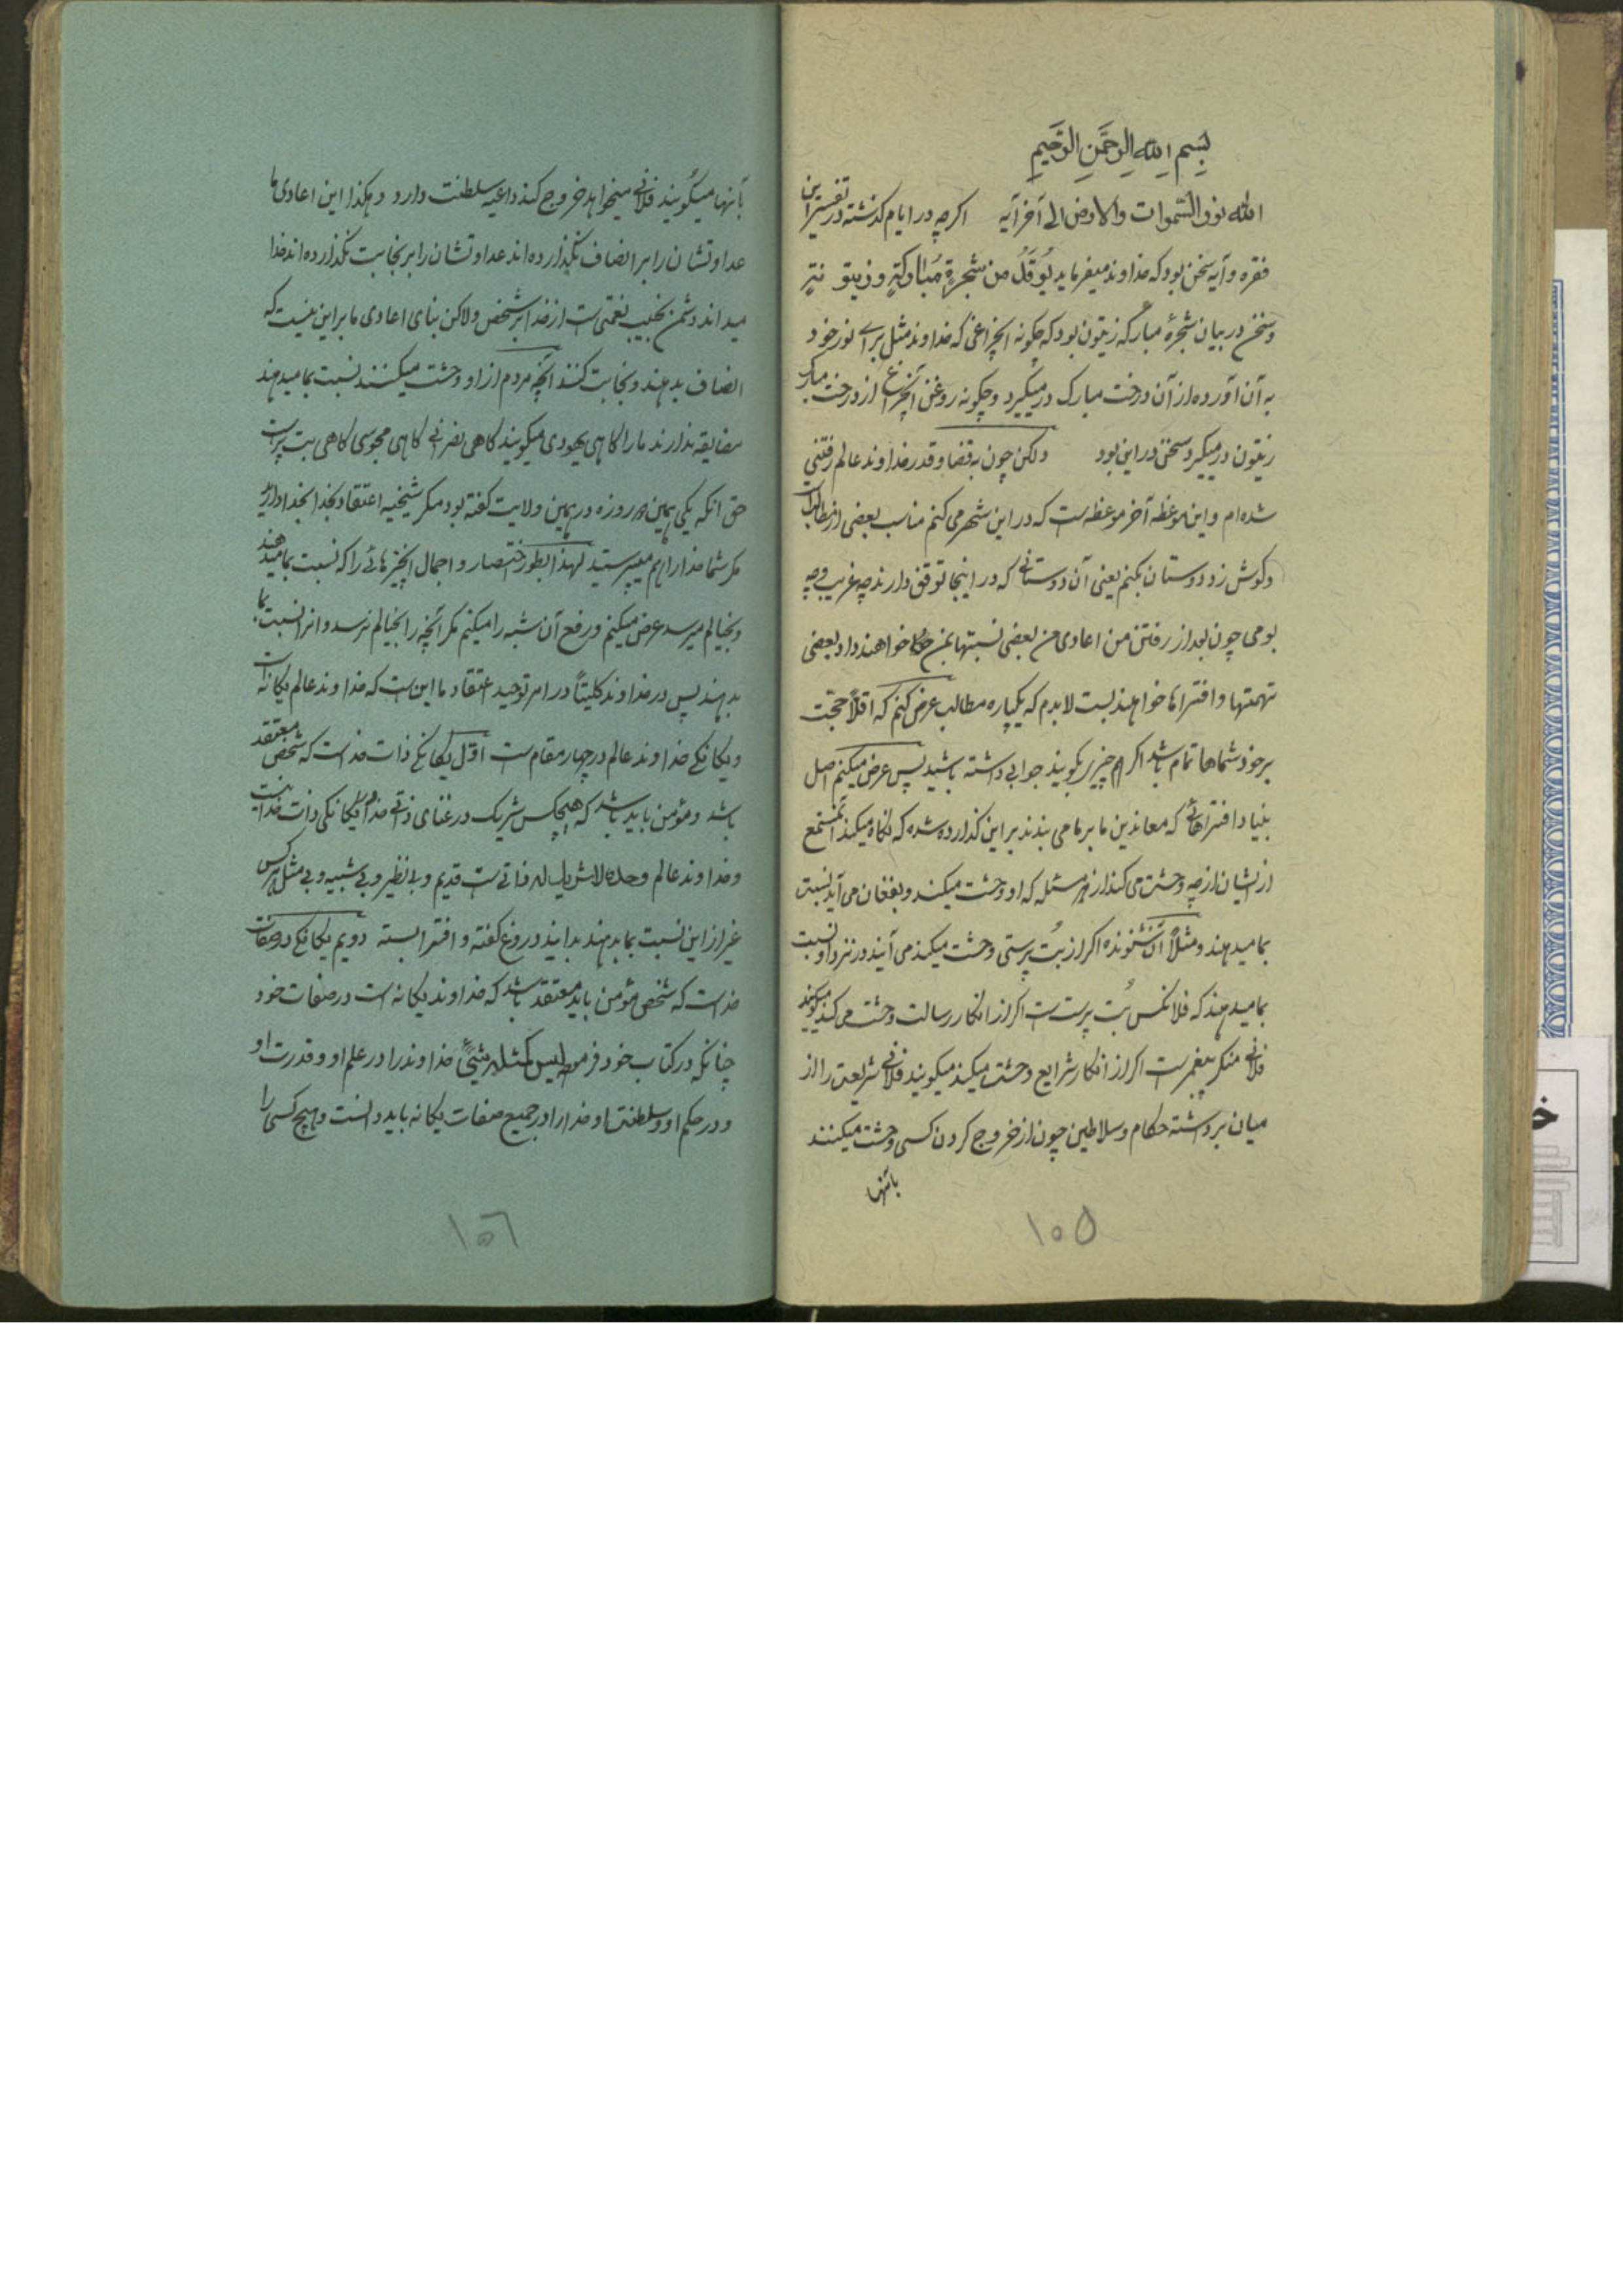 بِسْمِ اللهِ الرَّحْمَنِ الرَّحِيمِ
الله نور السّموات والارض الی آخر آیه اکرچه در ایام کذشته در تفسیر این
فقره و آیه سخن بود که خداوند میفرماید یُوقَدُ من شجرةٍ مُبارکةٍ زیتونةٍ
و سخن در بیان شجرهٔ مبارکه زیتون بود که چکونه انچراغی که خداوند مثل برای نور خود
به آن آورده از آن درخت مبارک درمیکیرد و چکونه روغن آنچراغ از درخت مبارک
زیتون درمیکیرد سخن در این بود ولکن چون به قضا و قدر خداوند عالم رفتنی
شده‌ام و این موعظه آخر موعظه‌ست که در این شهر می‌کنم مناسب بعضی از مطالب
و کوش زد دوستان بکنم یعنی آن دوستانی که در اینجا توقف دارند چه غریب و چه
بومی چون بعد از رفتن من اعادی من بعضی نسبتها بمن خواهند داد بعضی
تهمتها و افتراها خواهند بست لابدم که یکپاره مطالب عرض کنم که اقلاً حجّت
بر خود شماها تمام باشد اکر هم چیزی بکویند جوابی داشته باشید پس عرض میکنم اصل
بنیاد افتراهائی که معاندین ما بر ما می بندند بر این کذارده شده که نکاه میکنند مستمع
از ایشان از چه وحشت می کند از هر مسئله که او وحشت میکند و بفغان می آید نسبت
بما میدهند و مثلاً آن شنونده اکر از بُت پرستی وحشت میکند می آیند در نزد او نسبت
بما میدهند که فلانکس بُت پرست است اکر از انکار رسالت وحشت می کند میکویند
فلانی منکر پیغمبر است اکر از انکار شرایع وحشت میکند میکویند فلانی شریعت را از
میان برداشته حکام و سلاطین چون از خروج کردن کسی وحشت میکنند
بآنها
۱۵۵
بآنها میکویند فلانی میخواهد خروج کند داعیه سلطنت دارد و هکذا این اعادی ما
عداوتشان را بر انصاف نکذارده‌اند عداوتشان را بر نجابت نکذارده‌اند خدا
میداند دشمن نجیب نعمتی است از خدا بر شخص ولاکن بنای اعادی ما بر این نیست که
انصاف بدهند و نجابت کنند انچه مردم از او وحشت میکنند نسبت بما میدهند
مضایقه ندارند ما را کاهی یهودی میکویند کاهی نصرانی کاهی مجوسی کاهی بت پرست
حتی انکه یکی همین روزه در همین ولایت کفته بود مکر شیخیه اعتقاد بخدا دارند
مکر شما خدا را هم میپرستید لهذا بطور اختصار و اجمال انچیزهائی را که نسبت بما میدهند
و بخیالم میرسد عرض میکنم و رفع آن شبه را میکنم مکر آنچه را بخیالم نرسد و انرا نسبت بما
بدهند پس در خداوند کلیتاً در امر توحید اعتقاد ما این است که خداوند عالم یکانه است
و یکانکی خداوند عالم در چهار مقام است اوّل یکانکی ذات خداست که شخص معتقد
باشد و مؤمن باید باشد که هیچکس شریک در غنای ذاتی خدا و یکانکی ذات خدا نیست
و خداوند عالم وحده لاشریک له ذاتی است قدیم و بی نظیر و بی شبیه و بی مثل هرکس
غیر از این نسبت بما بدهند بدانید دروغ کفته و افترا بسته دویم یکانکی در صفات
خداست که شخص مؤمن باید معتقد باشد که خداوند یکانه است در صفات خود
چنانکه در کتاب خود فرموده لیس کمثله شیئٌ خداوند را در علم او و قدرت او
و در حکم او و سلطنت او خدا را در جمیع صفات یکانه باید دانست و هیچ کسی را
۱۵۶
خ